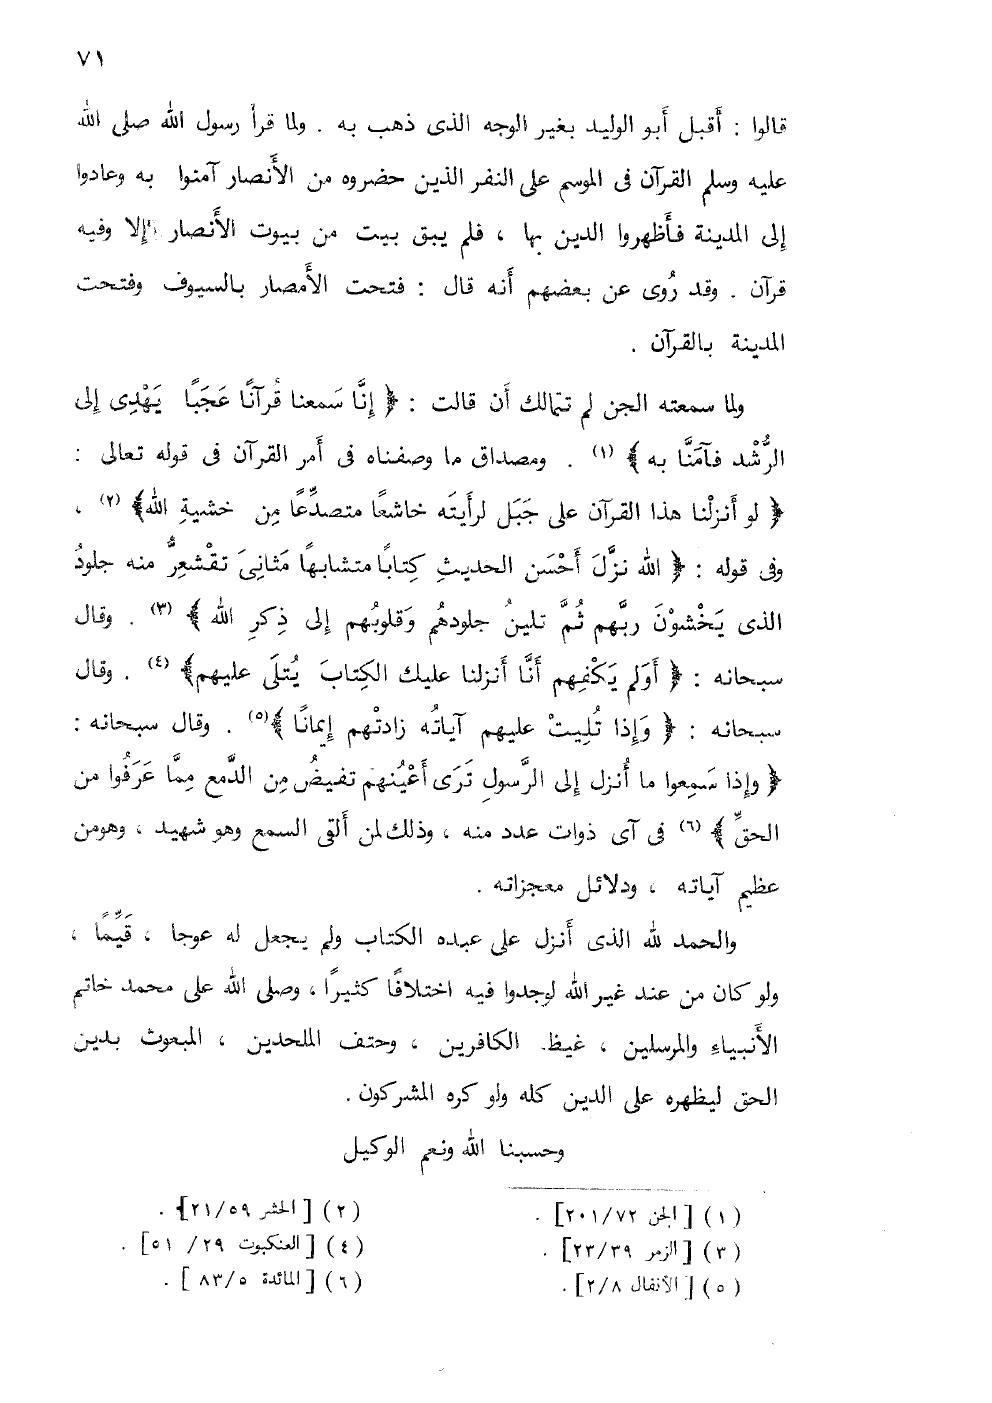 ٧١
قالوا : أَقبل أَبو الوليد بغير الوجه الذى ذهب به . ولما قرأ رسول الله صلى الله
عليه وسلم القرآن فى الموسم على النفر الذين حضروه من الأَنصار آمنوا به وعادوا
إلى المدينة فأَظهروا الدين بها ، فلم يبق بيت من بيوت الأَنصار إلا وفيه
قرآن . وقد رُوى عن بعضهم أَنه قال : فتحت الأَمصار بالسيوف وفتحت
المدينة بالقرآن .
ولما سمعته الجن لم تتمالك أَن قالت : ﴿ إِنَّا سَمعنا قُرآنًا عَجَبًا يَهْدِى إلى
الرُّشْد فآمَنَّا به ﴾ (١) . ومصداق ما وصفناه فى أَمر القرآن فى قوله تعالى :
﴿ لو أَنزلْنا هذا القرآن على جَبَل لرأيتَه خاشعًا متصدِّعًا مِن خشيةِ الله﴾ (٢) ،
وفى قوله : ﴿ الله نزَّلَ أَحْسَن الحديثِ كِتابًا متشابهًا مَثانِىَ تقْشعِرُّ منه جلودُ
الذى يَخْشوْنَ ربَّهم ثُمَّ تلينُ جلودهُم وَقلوبُهم إلى ذِكرِ الله ﴾ (٣) . وقال
سبحانه : ﴿ أَوَلم يَكْفِهم أَنَّا أَنزلنا عليك الكِتابَ يُتلَى عليهم﴾ (٤) . وقال
سبحانه : ﴿ وَإذا تُلِيتْ عليهم آياتُه زادتْهم إيمانًا ﴾(٥) . وقال سبحانه :
﴿ وإذا سَمِعوا ما أُنزل إلى الرَّسولِ تَرَى أَعْيُنهم تفيضُ مِن الدَّمع مِمَّا عَرَفُوا من
الحقِّ ﴾ (٦) فى آى ذوات عدد منه ، وذلك لمن أَلقى السمع وهو شهيد ، وهومن
عظيم آياته ، ودلائل معجزاته .
والحمد لله الذى أَنزل على عبده الكتاب ولم يجعل له عوجا ، قَيِّمًا ،
ولو كان من عند غير الله لوجدوا فيه اختلافًا كثيرًا ، وصلى الله على محمد خاتم
الأَنبياء والمرسلين ، غيظ الكافرين ، وحتف الملحدين ، المبعوث بدين
الحق ليظهره على الدين كله ولو كره المشركون .
وحسبنا الله ونعم الوكيل
(١) [ الجن ٢٠١/٧٢] .
(٢) [ الحشر ٢١/٥٩] .
(٣) [ الزمر ٢٣/٣٩] .
(٤) [ العنكبوت ٢٩/ ٥١] .
(٥) [ الأنفال ٢/٨] .
(٦) [ المائدة ٨٣/٥ ] .